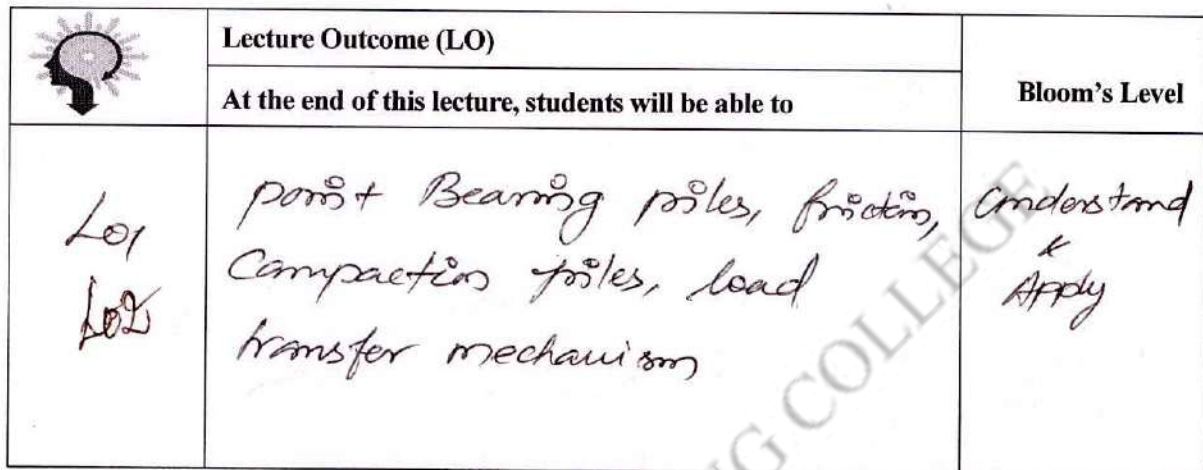 Lecture Outcome (LO)
At the end of this lecture, students will be able to
Bloom's Level
LO1
LO2
point Bearing piles, friction,
Compaction piles, load
transfer mechanism
Understand
&
Apply
G COLLEGE